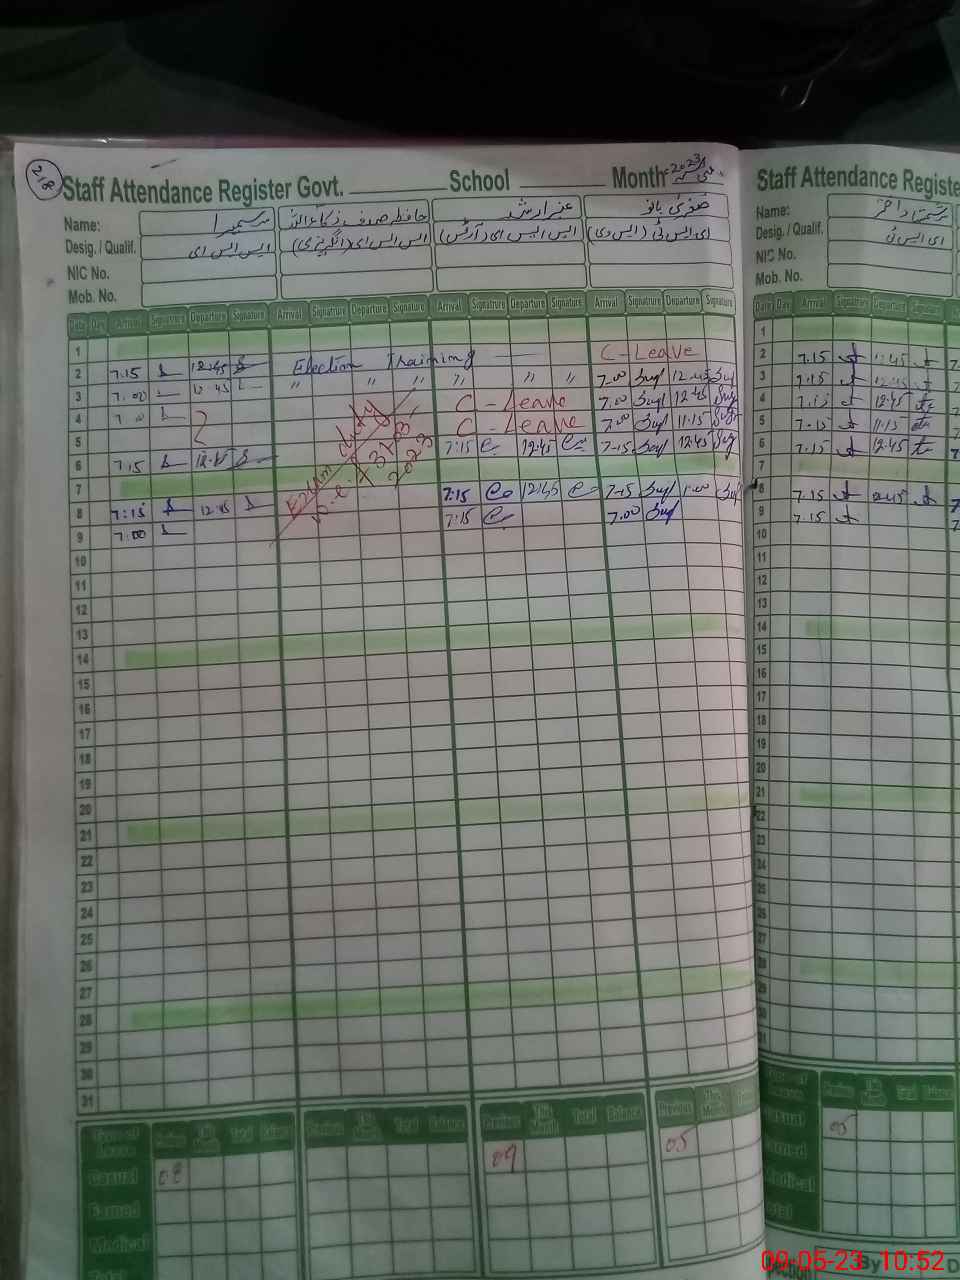 218
Staff Attendance Register Govt. School Month مئی 2023ء
Name: سمیرا حافظ صدف ذکاءاللہ عنبر ارشد صغریٰ بانو
Desig. / Qualif. ایس ایس ای ایس ایس ای (انگریزی) ایس ایس ای (آرٹس) ای ایس ٹی (ایس وی)
NIC No.
Mob. No.
Date Day Arrival Signatrure Departure Signatrure Arrival Signatrure Departure Signatrure Arrival Signatrure Departure Signatrure Arrival Signatrure Departure Signatrure
1
2 7.15 12:45 Election Training C-Leave
3 7.00 12:45 " " " " " " 7.00 12.45
4 7.00 C - Leave 7.00 12.45
5 C - Leave 7.00 11.15
6 7.15 12.45 7:15 12:45 7.15 12.45
7
8 7:15 12:45 7:15 12:45 7.15 1.00
9 7.00 7:15 7.00
Exam duty
w.e.f 31.03.
2023
10
11
12
13
14
15
16
17
18
19
20
21
22
23
24
25
26
27
28
29
30
31
Type of Leave Previous This Month Total Balance Previous This Month Total Balance Previous This Month Total Balance Previous This Month
Casual 08 09 05
Earned
Medical
Staff Attendance Registe
Name:
Desig. / Qualif. ای ایس ٹی
NIC No.
Mob. No.
Date Day Arrival Signatrure Departure Signatrure
1
2 7.15 12:45
3 7.15 12:45
4 7.15 12:45
5 7.15 11:15
6 7.15 12:45
7
8 7.15 12:45
9 7.15
10
11
12
13
14
15
16
17
18
19
20
21
22
23
24
25
26
27
28
29
30
31
Type of Leave Previous This Month Total Balance
Casual 05
Earned
Medical
Total
By
09-05-23 10:52